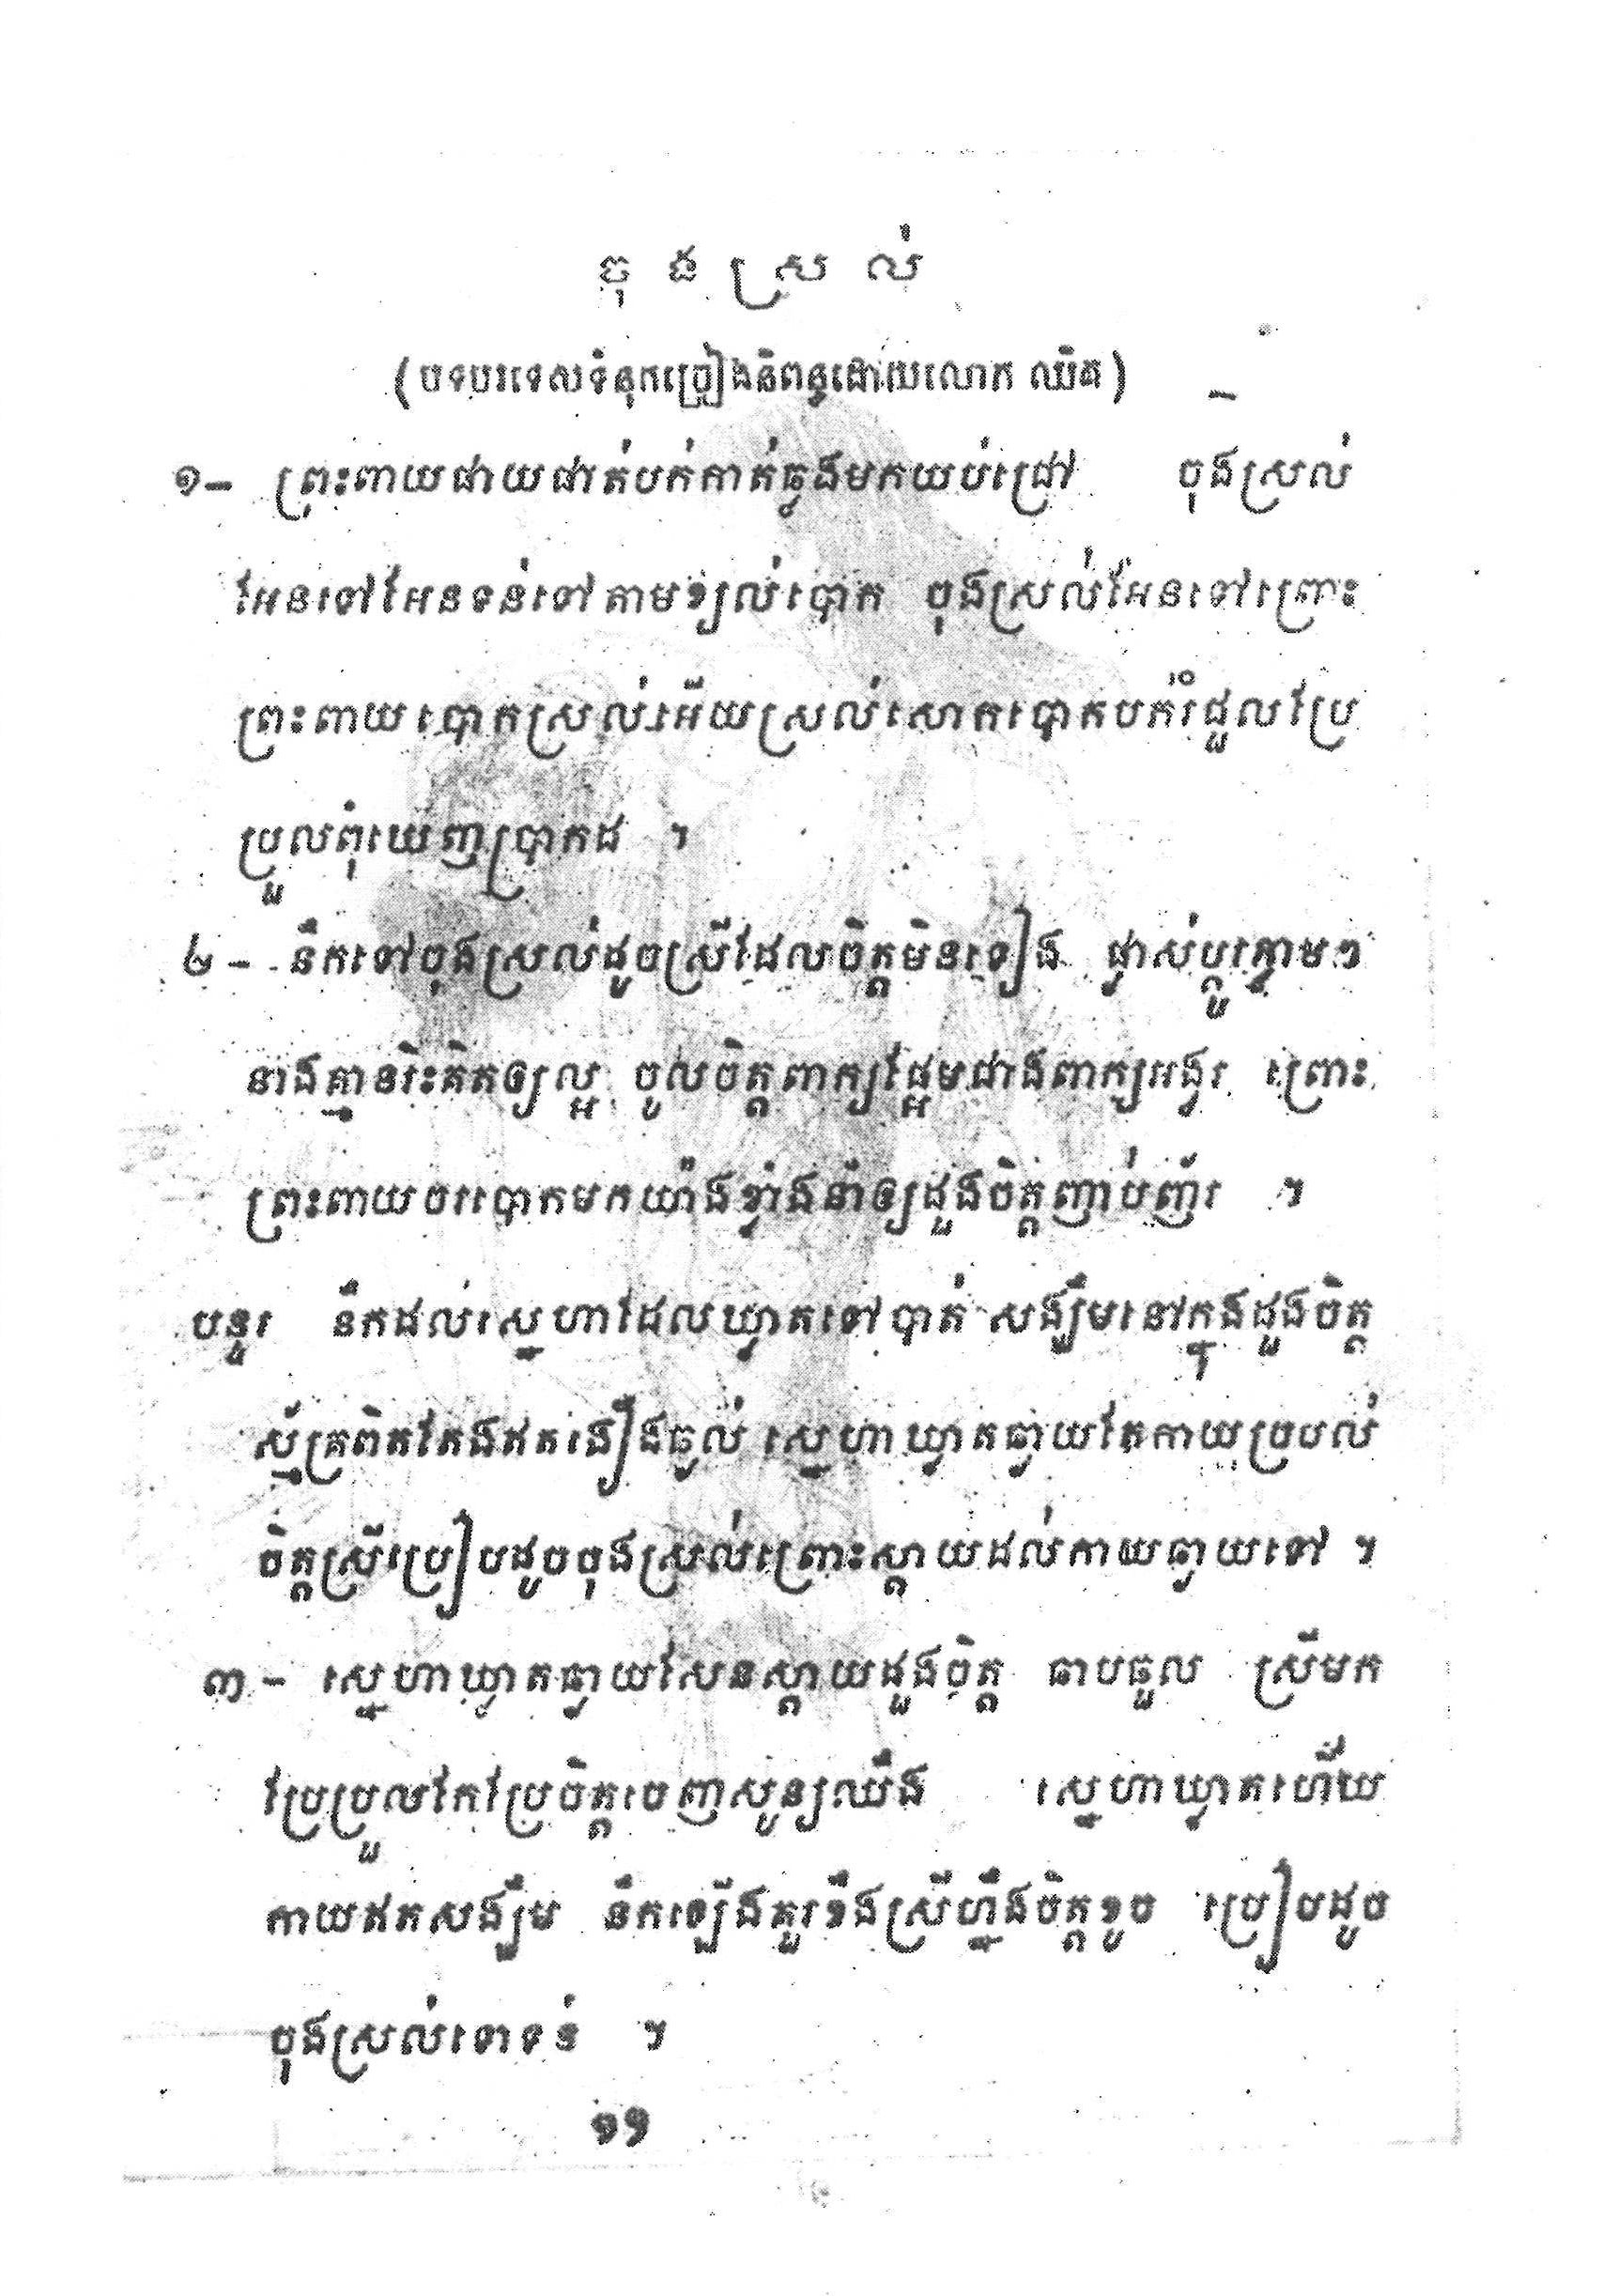 ចុងស្រល់
(បទបរទេសទំនុកច្រៀងនិពន្ធដោយលោក ឈិត)
១- ព្រះពាយផាយផាត់បក់កាត់ធ្វូងមកយប់ជ្រៅ ចុងស្រល់
អែនទៅអែនទន់ទៅតាមខ្យល់បោក ចុងស្រល់អែនទៅព្រោះ
ព្រះពាយបោកស្រល់អើយស្រល់សោកបោកបក់រំដួលប្រែ
ប្រួលពុំឃើញប្រាកដ ។
២- នឹកទៅចុងស្រល់ដូចស្រីដែលចិត្តមិនទៀង ផ្លាស់ប្តូរភ្លាមៗ
នាងគ្មានរិះគិតឲ្យល្អ ចូលចិត្តពាក្យផ្អែមជាងពាក្យអង្វរ ព្រោះ
ព្រះពាយចរបោកមកយ៉ាងខ្លាំងនាំឲ្យដួងចិត្តញាប់ញ័រ ។
បន្ទរ នឹកដល់ស្នេហាដែលឃ្លាតទៅបាត់ សង្ឃឹមនៅក្នុងដួងចិត្ត
ស្ម័គ្រពិតតែងឥតងឿងឆ្ងល់ ស្នេហាឃ្លាតឆ្ងាយតែកាយច្របល់
ចិត្តស្រីប្រៀបដូចចុងស្រល់ព្រោះស្តាយដល់កាយឆ្ងាយទៅ ។
៣- ស្នេហាឃ្លាតឆ្ងាយសែនស្តាយដួងចិត្ត ធាបធួល ស្រីមក
ប្រែប្រួលកែប្រែចិត្តចេញសូន្យឈឹង ស្នេហាឃ្លាតហើយ
កាយឥតសង្ឃឹម នឹកឡើងគួរខឹងស្រីហ្នឹងចិត្តខូច ប្រៀបដូច
ចុងស្រល់ទោទន់ ។
១១